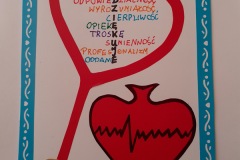 ODPOWIEDZIALNOŚĆ
WYROZUMIAŁOŚĆ,
CIERPLIWOŚĆ
OPIEKĘ
TROSKĘ
SUMIENNOŚĆ
PROFESJONALIZM
ODDANIE
DZIĘKUJĘ